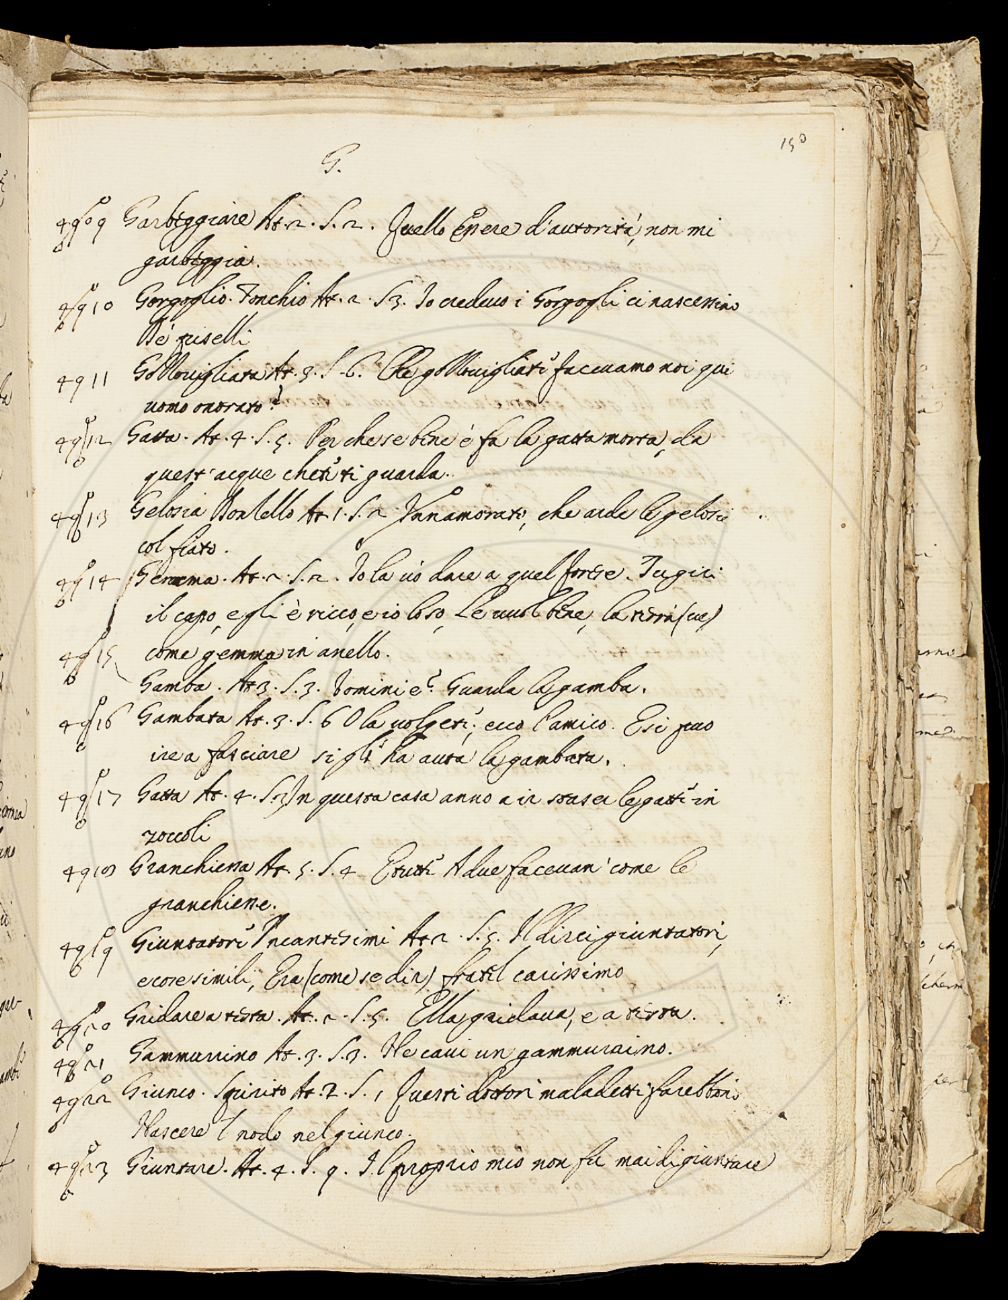 150
G.
4909 Garbeggiare At. 2. S. 2. Quello essere d'autorità, non mi
garbeggia.
4910 Gorgoglio. Tonchio At. 2. S. 3. Io credevo i Gorgogli ci nascessino
Ne' piselli
4911 Gollovigliata At. 3. S. 6. Che gollovigliate facevamo noi qui
uomo onorato?
4912 Gatta. At. 4. S. 5. Perche se bene e' fa la gatta morta, da
quest'acque chete ti guarda.
4913 Gelosia Sportello At. 1. S. 2. Innamorato, che arde le gelosie
col fiato.
4914 Gemma. At. 2. S. 2. Io la vò dare a quel forese. Tu gir
il capo, egli è ricco, e io lo so, Le vuol bene, la terrà (ve)
come gemma in anello.
4915 Gamba. At. 3. S. 3. Domine è. Guarda la gamba.
4916 Gambata At. 3. S. 6 O la volgete; ecco l'amico. E si può
ire a fasciare si gli ha avuta la gambata.
4917 Gatta At. 4. S. In questa casa anno a ir stasera le gatte in
zoccoli
4918 Granchiessa At. 5. S. 4 E tutti A due facevan' come le
granchiesse.
4919 Giuntatori Incantesimi At. 2. S. 5. Il dir ci giuntatori,
e cose simili, Era (come se dir) fratel carissimo
4920 Gridare a testa. At. 2. S. 5. Ella gridava, e a testa.
4921 Gammurrino At. 3. S. 3. Ne cavi un gammurrino.
4922 Giunco. Spirito At. 2. S. 1 Questi dottori maladetti farebbono
Nascere 'l nodo nel giunco.
4923 Giuntare. At. 4. S. 9. Il proprio mio non fù mai di giuntare